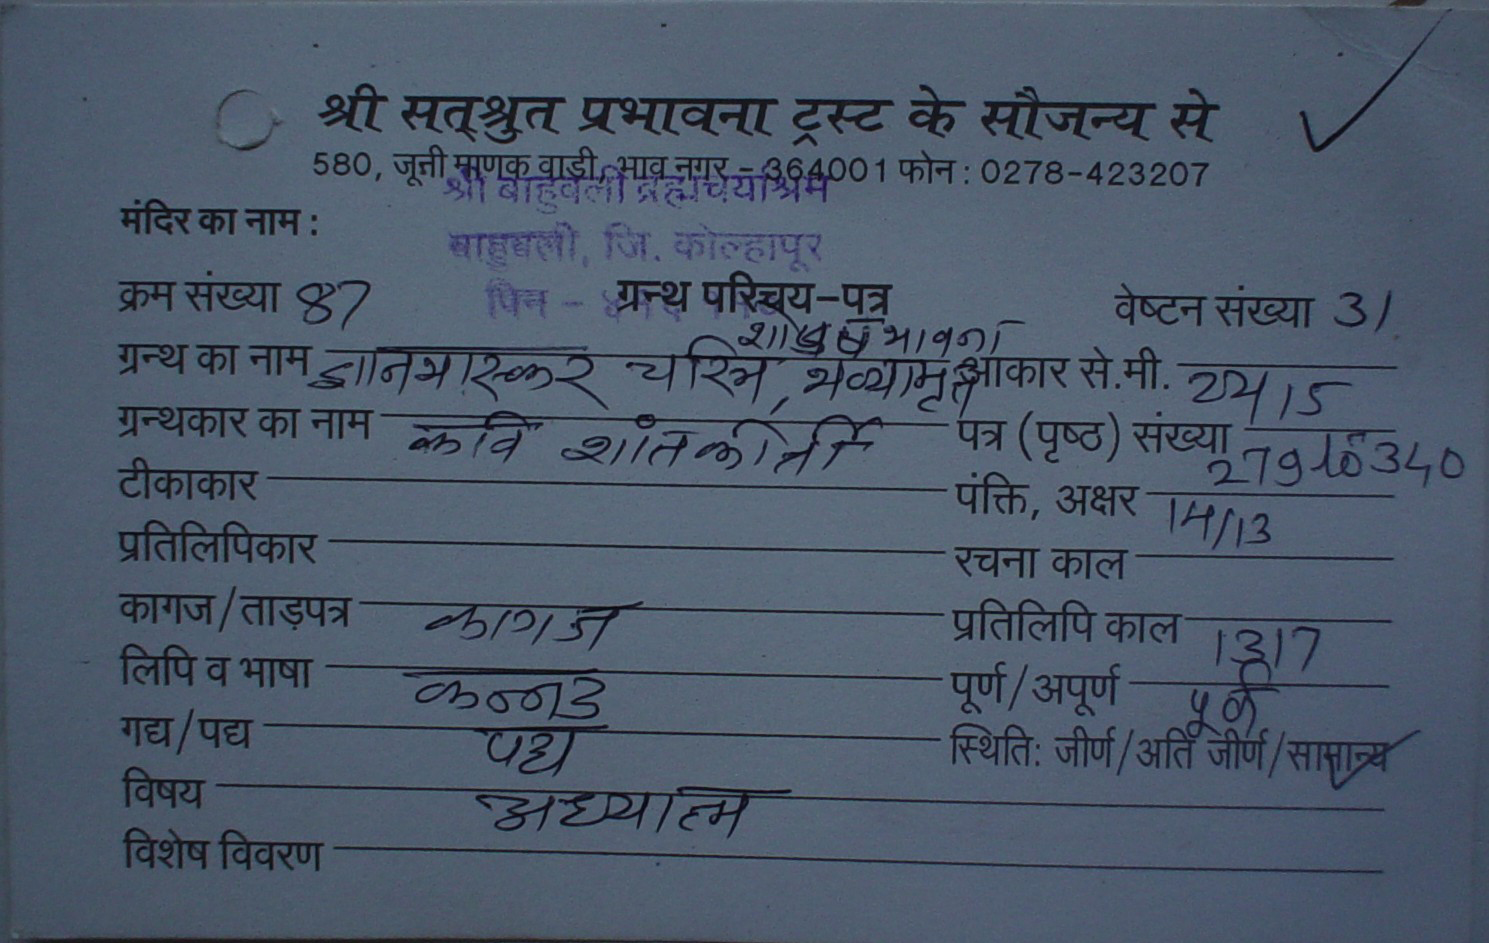 श्री सत्श्रुत प्रभावना ट्रस्ट के सौजन्य से
580, जूनी माणक वाडी, भाव नगर - 364001 फोन : 0278-423207
श्री बाहुबली ब्रह्मचर्याश्रम
मंदिर का नाम :
बाहुबली, जि. कोल्हापूर
पिन -
क्रम संख्या 87 ग्रन्थ परिचय-पत्र वेष्टन संख्या 31
भावना
ग्रन्थ का नाम ज्ञानभास्कर चरित्र, भव्यामृत आकार से.मी.
ग्रन्थकार का नाम कवि शांतकीर्ती पत्र (पृष्ठ) संख्या 279 340
टीकाकार पंक्ति, अक्षर 14/13
प्रतिलिपिकार रचना काल
कागज/ताड़पत्र कागज प्रतिलिपि काल 1317
लिपि व भाषा कन्नड पूर्ण/अपूर्ण पूर्ण
गद्य/पद्य पद्य स्थिति: जीर्ण/अति जीर्ण/सामान्य
विषय अध्यात्म
विशेष विवरण